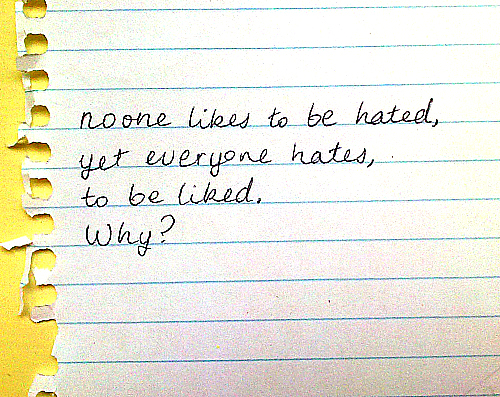 noone likes to be hated,
yet everyone hates,
to be liked.
Why?